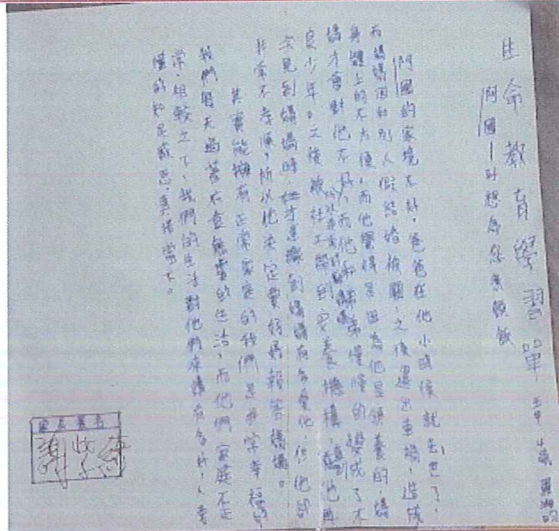 生命教育學習單
阿國
阿國的家境不好,爸爸在他小時候就去世了,
而媽媽因和別人假結婚被關,之後還出車禍,造成
身體上的不方便,而他覺得是因為他是領養的,媽
媽才會對他不好,而他和懵懂的變成了不
良少年。之後被社工帶到安養機構,他再
次見到媽媽時,才意識到媽媽有多愛他,但他卻
非常不孝順,所以他決定要好好報答媽媽。
其實能擁有正常家庭的我們是非常幸福的
我們每天過著不愁無慮的生活,而他們家庭不正
常,相較之下,我們的生活對他們來講有多好,人要
懂的知足感恩,真注當下。
家長簽名